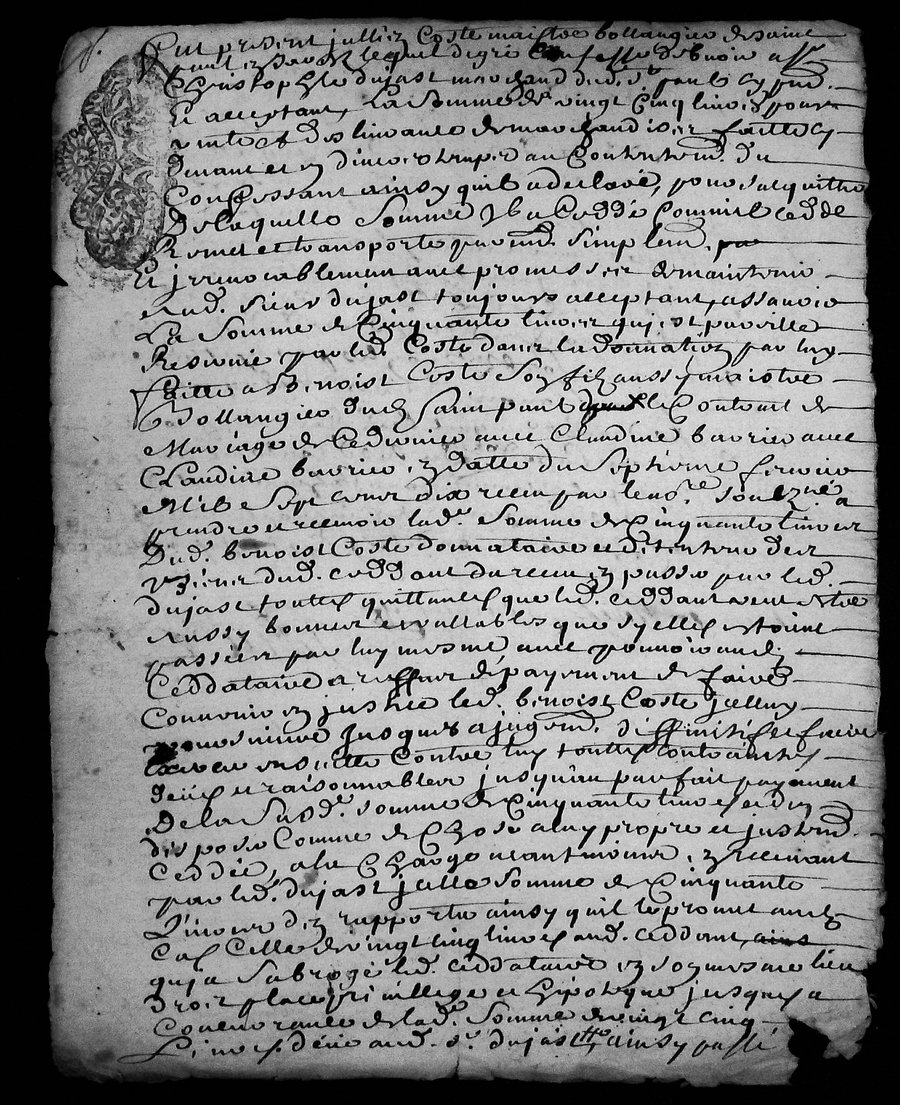 Fut present jullien Coste maistre bollangier de saint
paul en Jarez lequel de gré Confesse debvoir a sr
Christophle dujast marchand dud. st paul cy pnt.
Et acceptant, La Somme de vingt Cinq livres pour
vente et deslivrance de marchandises faitte cy
devant et en divers temps au Contentemt. du
Confessant ainsy quil a declaré, pour sacquitter
De laquelle Somme Il a Ceddé Commis Cedde
Remet et transporte puremt. simplemt.
Et jrrevocablement avec promesses de maintenir
aud. sieur dujast toujours acceptant, assavoir
La Somme de Cinquante livres qui est pareille
Reservée par led. Coste dans la donnation par luy
faitte a Benoist Coste Son fils aussy maistre
Bollangier dud. Saint paul dans le Contrat de
Mariage de Ce dernier avec Claudine barrier avec
Claudine barrier, en datte du Septieme fevrier
Mil Sept Cens dix receu par le nore. soubzné a
prendre et recevoir lad. Somme de Cinquante livres
Dud. benoist Coste donnataire et detenteur des
biens dud. ceddant du receu en passer par led.
dujast touttes quittances que led. ceddant veut estre
aussy bonnes et vallables que sy elles estoient
passées par luy mesme avec pouvoir aud.
Ceddataire a reffus de payement de faire
Convenir en justice led. benoist Coste jcelluy
poursuivre jusques a jugemt. diffinitif et faire
ensuitte Contre luy touttes Contraintes
deües et raisonnables jusquau parfait payement
De la Susd. somme de Cinquante livres et den
disposer Comme de Chose a luy propre et justemt.
Ceddée, a la Charge neantmoins, en recevant
par led. dujast jcelle Somme de Cinquante
Livres den rapporter ainsy quil le promet aud.
Cas Celle de vingt Cinq livres aud. Ceddant,
qui a Subrogé led. Ceddataire en Son mesme lieu
droit place privillege et hipoteque jusques a
Concurrance de lad. Somme de vingt Cinq
Livres deüe aud. sr. dujast, ainsy passé